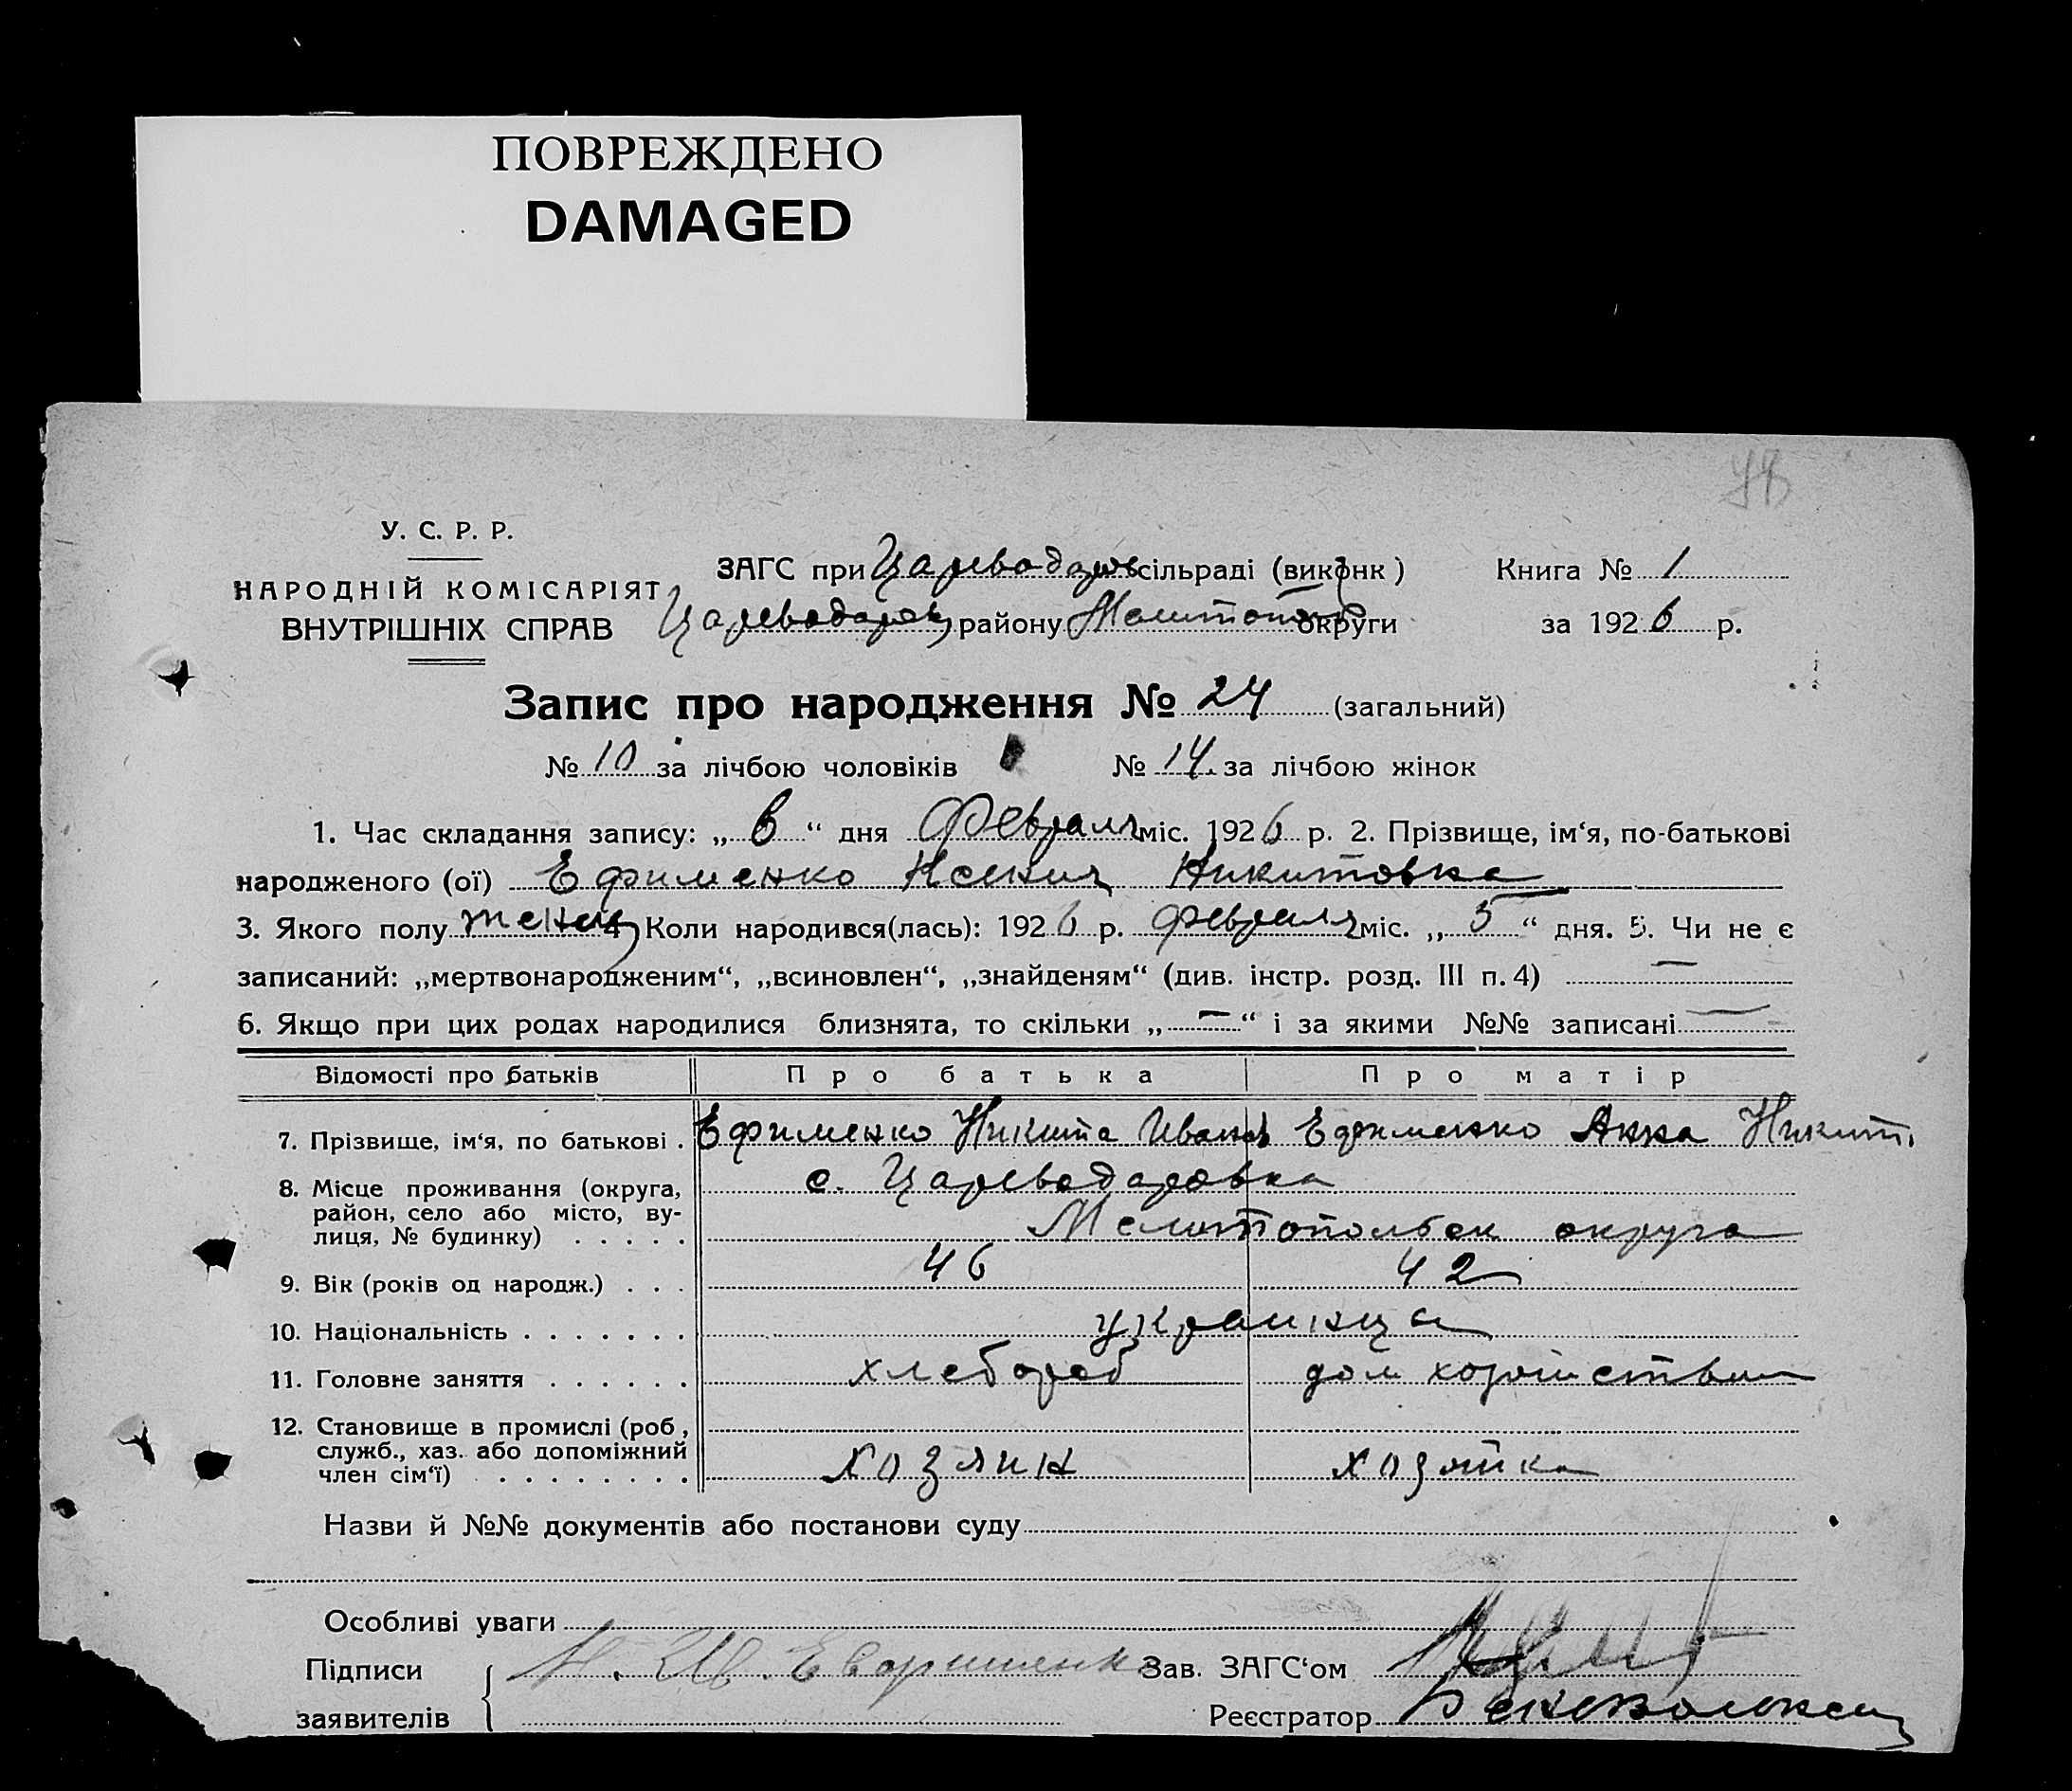 ПОВРЕЖДЕНО
DAMAGED
У. С. Р. Р.
НАРОДНІЙ КОМІСАРІЯТ
ВНУТРІШНІХ СПРАВ
ЗАГС при Цареводаров сільраді (виконк)
Книга № 1
Цареводаров району Мелитоп округи
за 1926 р.
Запис про народження № 24 (загальний)
№ 10 за лічбою чоловіків № 14 за лічбою жінок
1. Час складання запису: „ 6 “ дня Февраля міс. 1926 р. 2. Прізвище, ім‘я, по-батькові
народженого (ої) Ефименко Ксения Никитовна
3. Якого полу женск 4. Коли народився(лась): 1926 р. февраля міс. „ 5 “ дня. 5. Чи не є
записаний: „мертвонародженим“, „всиновлен“, „знайденям“ (див. інстр. розд. III п. 4) —
6. Якщо при цих родах народилися близнята, то скільки „ — “ і за якими №№ записані —
Відомості про батьків Про батька Про матір
7. Прізвище, ім‘я, по батькові . Ефименко Никита Иванов Ефименко Анна Никит.
8. Місце проживання (округа, с. Цареводаровка
район, село або місто, ву-
лиця, № будинку) . . . . . Мелитопольск округа
9. Вік (років од народж.) . . . 46 42
10. Національність . . . . . . . украинца
11. Головне заняття . . . . . . хлебороб дом хозяйством
12. Становище в промислі (роб,
служб., хаз. або допоміжний
член сім‘ї) . . . . . . . . . хозяин хозяйка
Назви й №№ документів або постанови суду
Особливі уваги
Підписи Н. Ив. Зав. ЗАГС‘ом
заявителів Реєстратор